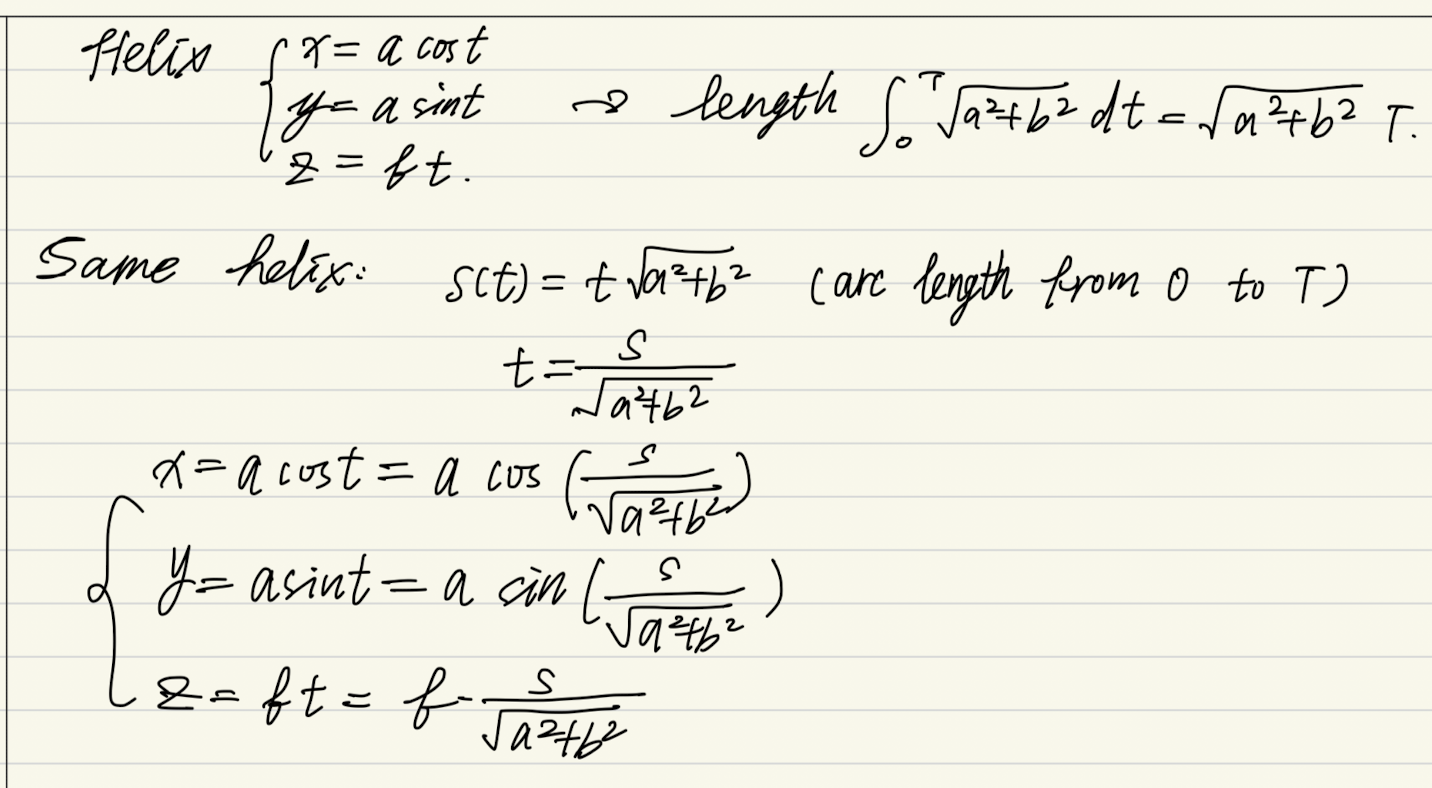 Helix { x = a cos t
y = a sin t → length ∫₀ᵀ √(a²+b²) dt = √(a²+b²) T.
z = bt.
Same helix: s(t) = t √(a²+b²) (arc length from 0 to T)
t = s/√(a²+b²)
{ x = a cos t = a cos (s/√(a²+b²))
y = a sin t = a sin (s/√(a²+b²))
z = bt = b · s/√(a²+b²)